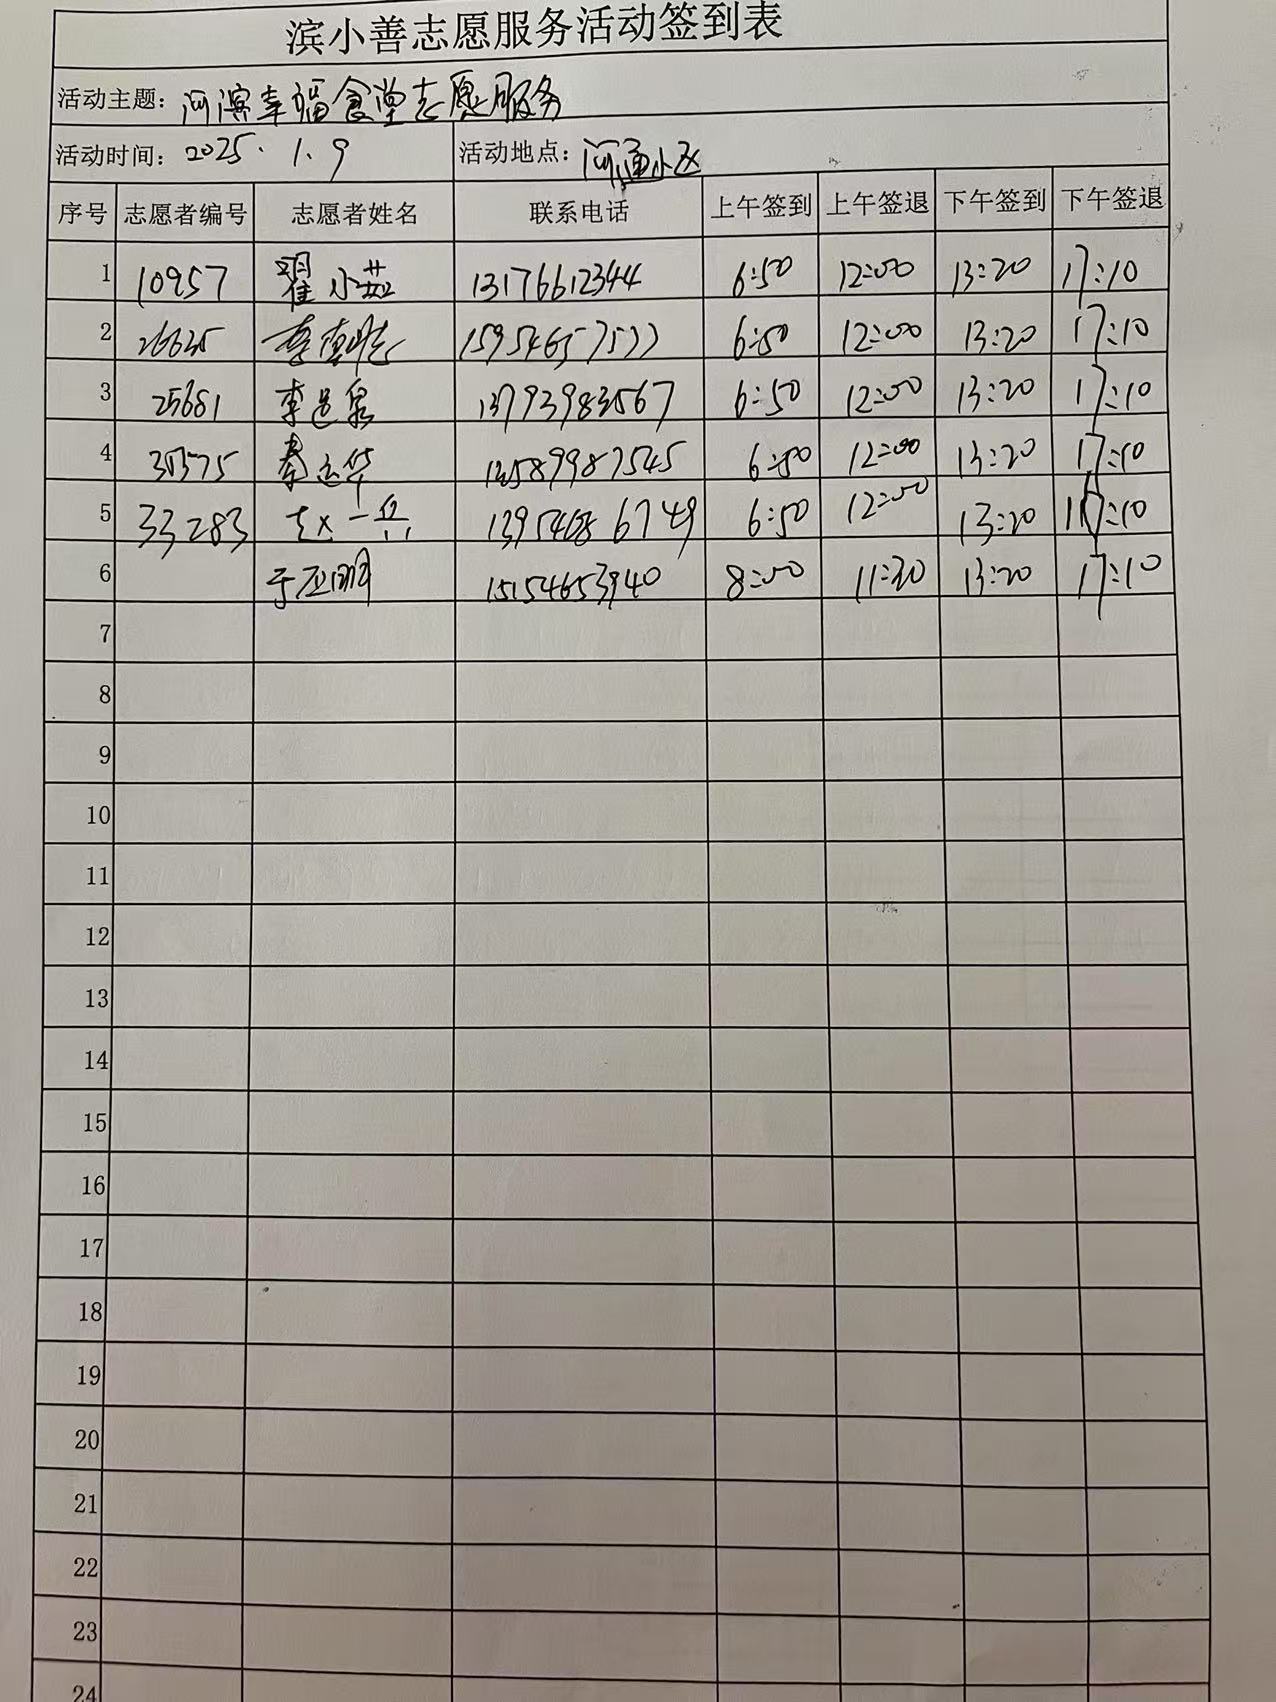 滨小善志愿服务活动签到表
活动主题: 河滨幸福食堂志愿服务
活动时间: 2025.1.9 活动地点: 河通小区
序号 志愿者编号 志愿者姓名 联系电话 上午签到 上午签退 下午签到 下午签退
1 10957 翟小茹 13176612344 6:50 12:00 13:20 17:10
2 26625 李 6:50 12:00 13:20 17:10
3 25681 李道泉 13793983567 6:50 12:00 13:20 17:10
4 30375 秦运华 6:50 12:00 13:20 17:10
5 33283 赵一兵 13954686749 6:50 12:00 13:20 17:10
6 于应明 15154653940 8:00 11:30 13:20 17:10
7
8
9
10
11
12
13
14
15
16
17
18
19
20
21
22
23
24